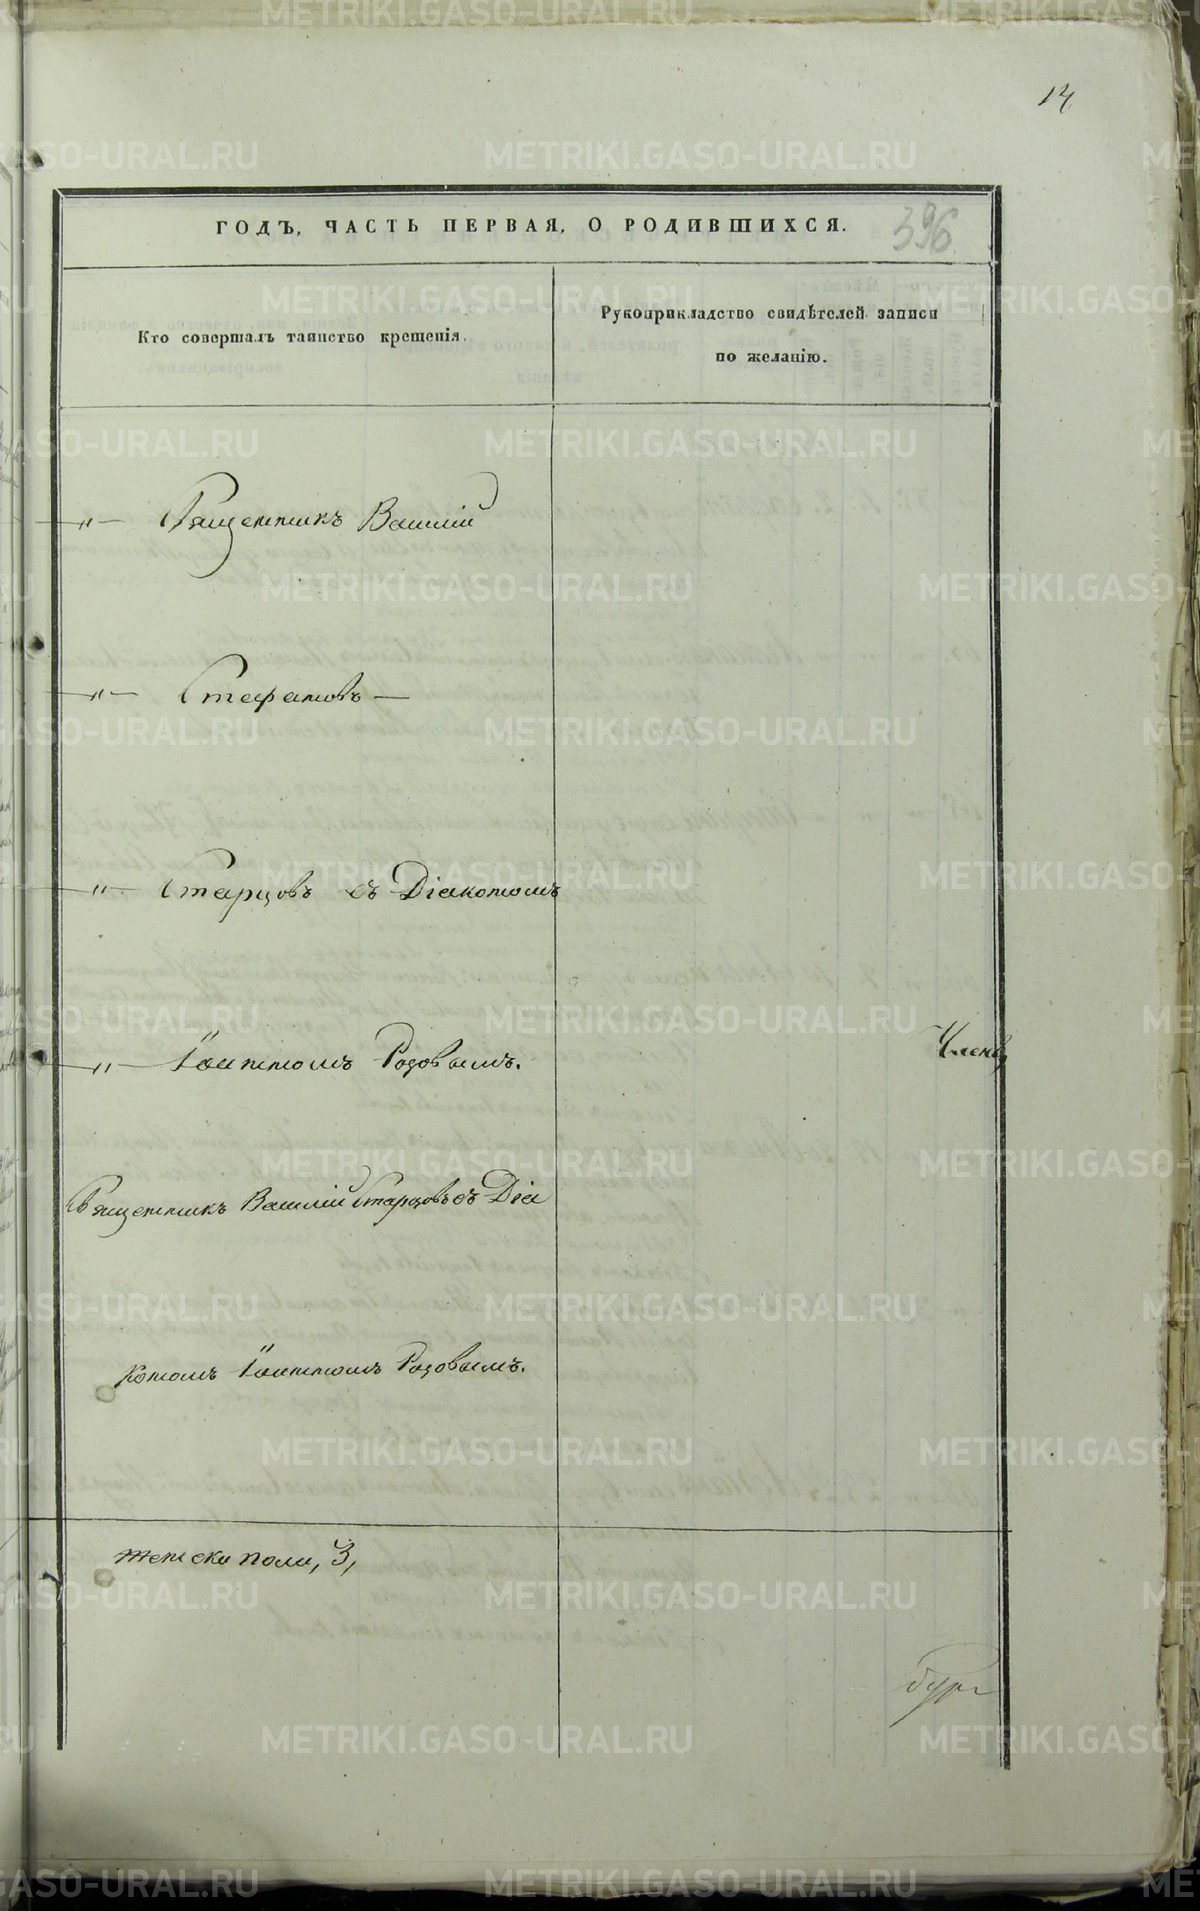 14
ГОДЪ, ЧАСТЬ ПЕРВАЯ, О РОДИВШИХСЯ.
396
Кто совершалъ таинство крещенія.
Рукоприкладство свидѣтелей записи
по желанію.
—"— Священникъ Василій
—"— Стефановъ —
—"— Старцовъ съ Діакономъ
—"— Іоанномъ Родовымъ.
Членъ
Священникъ Василій Старцовъ съ Діа
кономъ Іоанномъ Родовымъ.
женска пола, 3,
бург
METRIKI.GASO-URAL.RU